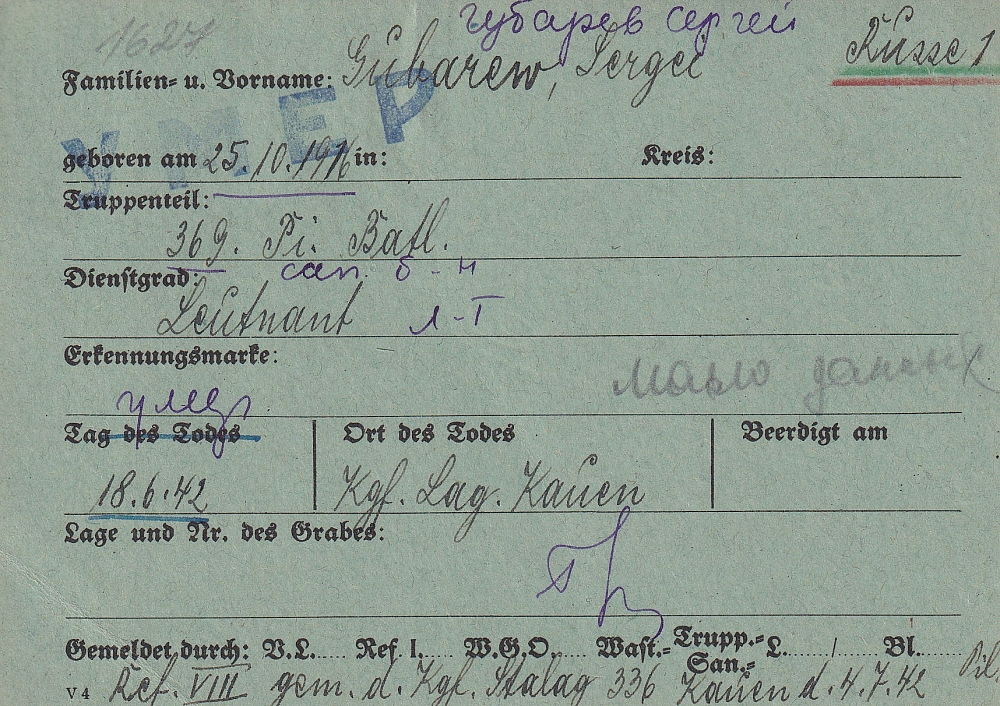 1627
Губарев Сергей
Familien= u. Vorname: Gubarew, Sergei
Russe 1
УМЕР
geboren am 25.10.1916 in: Kreis:
Truppenteil:
369. Pi. Batl.
Dienstgrad: сап. б-н
Leutnant л-т
Erkennungsmarke:
Мало данных
умер
Tag des Todes Ort des Todes Beerdigt am
18.6.42 Kgf. Lag. Kauen
Lage und Nr. des Grabes:
Gemeldet durch: V.L...... Ref. I..... W.G.O..... Wast.= Trupp.= San.= L....../...... Bl......
V 4 Ref. VIII gem. d. Kgf. Stalag 336 Kauen d. 4.7.42